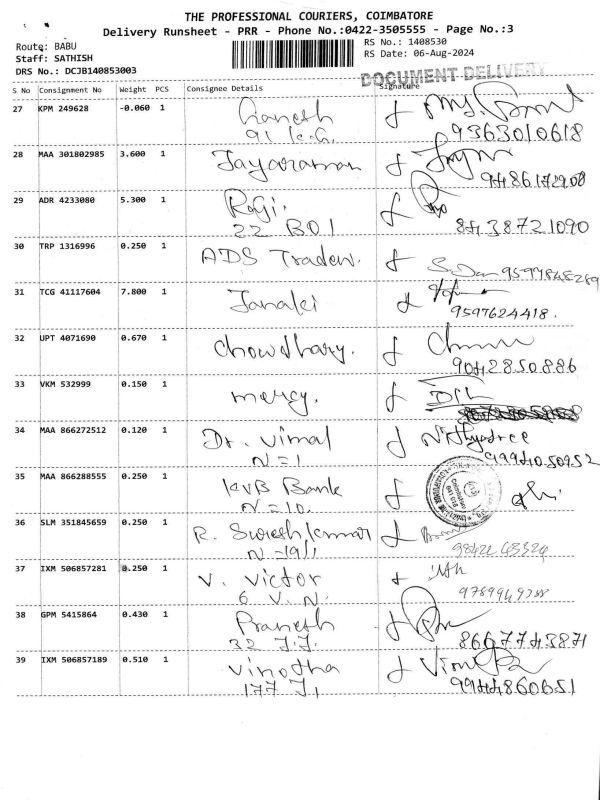 THE PROFESSIONAL COURIERS, COIMBATORE
Delivery Runsheet - PRR - Phone No.:0422-3505555 - Page No.:3
Route: BABU
RS No.: 1408530
Staff: SATHISH
RS Date: 06-Aug-2024
DRS No.: DCJB140853003
DOCUMENT DELIVERY
S No Consignment No Weight PCS Consignee Details Signature
27 KPM 249628 -0.060 1 Ganesh
91 K.G. 9363010618
28 MAA 301802985 3.600 1 Jayaraman
29 ADR 4233080 5.300 1 Raji.
22 BOI 8438721090
30 TRP 1316996 0.250 1 ADS Trader.
31 TCG 41117604 7.800 1 Janaki
9597624418.
32 UPT 4071690 0.670 1 Chowdhary.
9042850886
33 VKM 532999 0.150 1 mercy.
34 MAA 866272512 0.120 1 Dr. Vimal Nithyasree
N=1 9994050952
35 MAA 866288555 0.250 1 KVB Bank
N=10.
36 SLM 351845659 0.250 1 R. Suresh kumar
N=19/1
37 IXM 506857281 0.250 1 V. Victor
6 V. N.
38 GPM 5415864 0.430 1 Pranesh
32 J.J. 8667743871
39 IXM 506857189 0.510 1 Vinotha
177 J, 9944860651